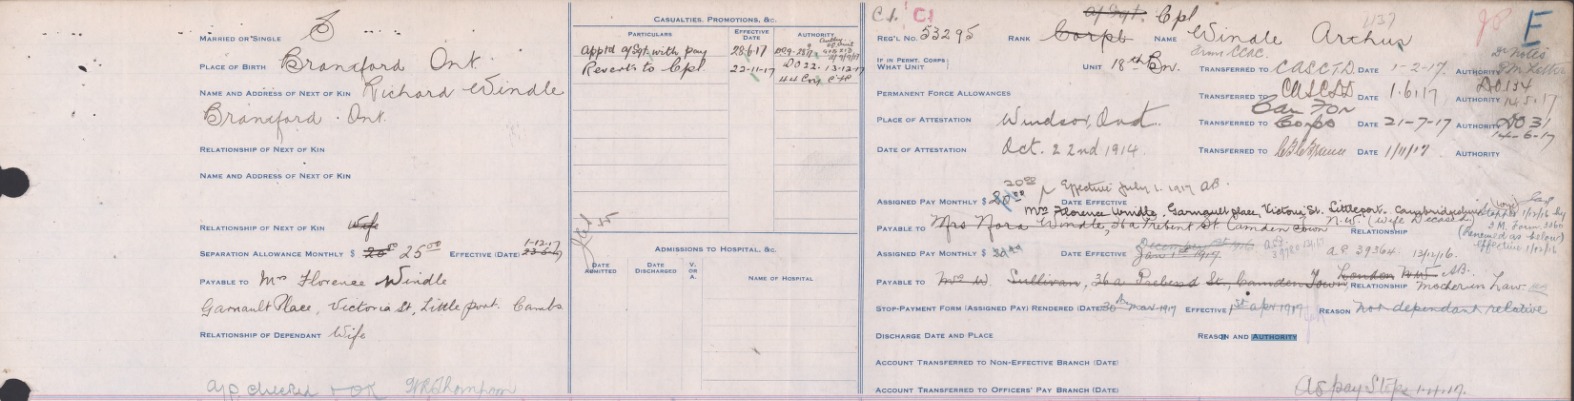 MARRIED OR SINGLE S
PLACE OF BIRTH Branxford Ont.
NAME AND ADDRESS OF NEXT OF KIN Richard Windle
Branxford Ont.
RELATIONSHIP OF NEXT OF KIN
NAME AND ADDRESS OF NEXT OF KIN
RELATIONSHIP OF NEXT OF KIN Wife
SEPARATION ALLOWANCE MONTHLY $ 20 00 25 00 EFFECTIVE (DATE) 1-12-17
PAYABLE TO Mrs Florence Windle
Garnault Place, Victoria St, Littleport. Cambs
RELATIONSHIP OF DEPENDANT Wife
a/p checked OK WR Thompson
CASUALTIES, PROMOTIONS, &C.
PARTICULARS EFFECTIVE DATE AUTHORITY
Apptd a/Sgt with pay 28-6-17
Reverts to Cpl 22-11-17 DO 22. 13-12-17
ADMISSIONS TO HOSPITAL, &C.
DATE ADMITTED DATE DISCHARGED V. OR A. NAME OF HOSPITAL
C.I. C.I. a/Sgt. Cpl 1137 E
REG'L NO. 53295 RANK Corpl NAME Windle Arthur
from CCAC.
IF IN PERMT. CORPS WHAT UNIT UNIT 18th Bn. TRANSFERRED TO C.A.S.C.T.D. DATE 1-2-17. AUTHORITY
PERMANENT FORCE ALLOWANCES TRANSFERRED TO DATE 1.6.17 AUTHORITY DO 134 14.5.17
PLACE OF ATTESTATION Windsor, Ont. TRANSFERRED TO Can For Corps DATE 21-7-17 AUTHORITY DO 31 14-6-17
DATE OF ATTESTATION Oct. 22nd 1914. TRANSFERRED TO DATE 1/11/17 AUTHORITY
20 00 Effective July 1. 1917 AB.
ASSIGNED PAY MONTHLY $ DATE EFFECTIVE
Mrs Florence Windle, Garnault place, Victoria St. Littleport. Cambridgeshire
PAYABLE TO Mrs Nora Windle, 36a Prebend St Camden Town N.W. RELATIONSHIP (wife Deceased)
ASSIGNED PAY MONTHLY $ DATE EFFECTIVE Jan 1st 1917 a.P. 39364 13/12/16.
PAYABLE TO Mrs W. Sullivan, 36a Prebend St, Camden Town London N.W. AB. RELATIONSHIP mother in Law
STOP-PAYMENT FORM (ASSIGNED PAY) RENDERED (DATE) Mar 1917 EFFECTIVE 1st apr 1917 REASON not dependant relative
DISCHARGE DATE AND PLACE REASON AND AUTHORITY
ACCOUNT TRANSFERRED TO NON-EFFECTIVE BRANCH (DATE)
ACCOUNT TRANSFERRED TO OFFICERS' PAY BRANCH (DATE)